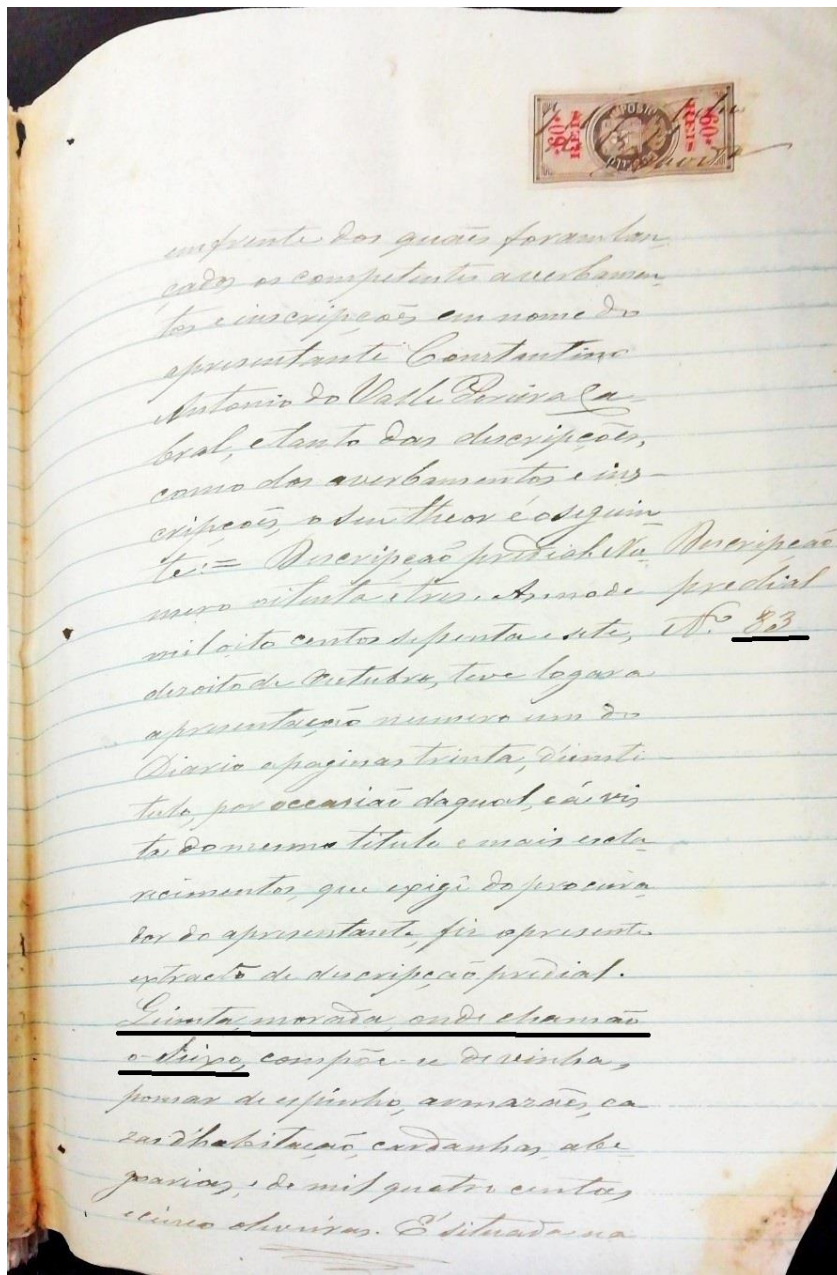 60 REIS
60 REIS
em frente dos quaes foram lan
çados os competentes averbamen
tos e inscripções em nome do
apresentante Constantino
Antonio do Valle Pereira Ca-
bral, e tanto das descripções,
como dos averbamentos e ins-
cripções, o seu theor é o seguin
te:= Descripção predial Nu
Descripção
mero oitenta e tres. Anno de
predial
mil oito centos sessenta e sete,
Nº 83
dezoito de Outubro, teve logar a
apresentação numero um do
Diario a paginas trinta, d'um ti
tulo, por occasião da qual, e á vis
ta do mesmo titulo e mais escla
recimentos, que exigi do procura
dor do apresentante, fiz o presente
extracto de descripção predial.
Quinta, morada, onde chamão
o Seixo, compõe-se de vinha,
pomar de espinho, armazaēs, ca
zas d'habitação, cardanhas, abe
goarias, e de mil quatro centas
e cinco oliveiras. É situada na